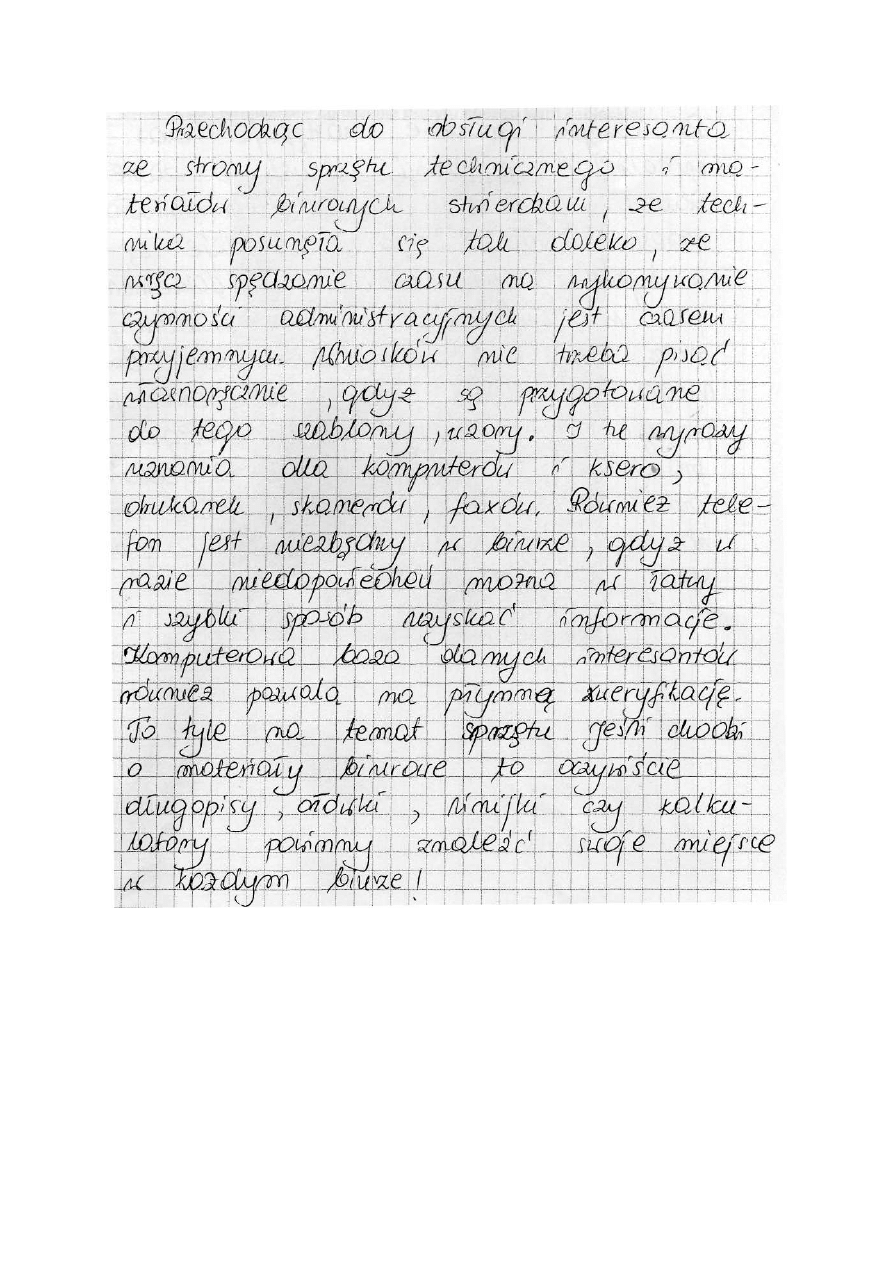 Przechodząc do obsługi interesanta
ze strony sprzętu technicznego i ma-
teriałów biurowych stwierdzam, ze tech-
nika posunęła się tak daleko, ze
wręcz spędzanie czasu na wykonywanie
czynności administracyjnych jest czasem
przyjemnym. Wniosków nie trzeba pisać
własnoręcznie, gdyz są przygotowane
do tego szablony, wzory. I tu wyrazy
uznania dla komputerów i ksero,
drukarek, skanerów, faxów. Równiez tele-
fon jest niezbędny w biurze, gdyz w
razie niedopowiedzeń mozna w łatwy
i szybki sposób uzyskać informacje.
Komputerowa baza danych interesantów
równiez pozwala na płynną zweryfikację.
To tyle na temat sprzętu jeśli chodzi
o materiały biurowe to oczywiście
długopisy, ołówki, linijki czy kalku-
latory powinny znaleźć swoje miejsce
w kazdym biurze!